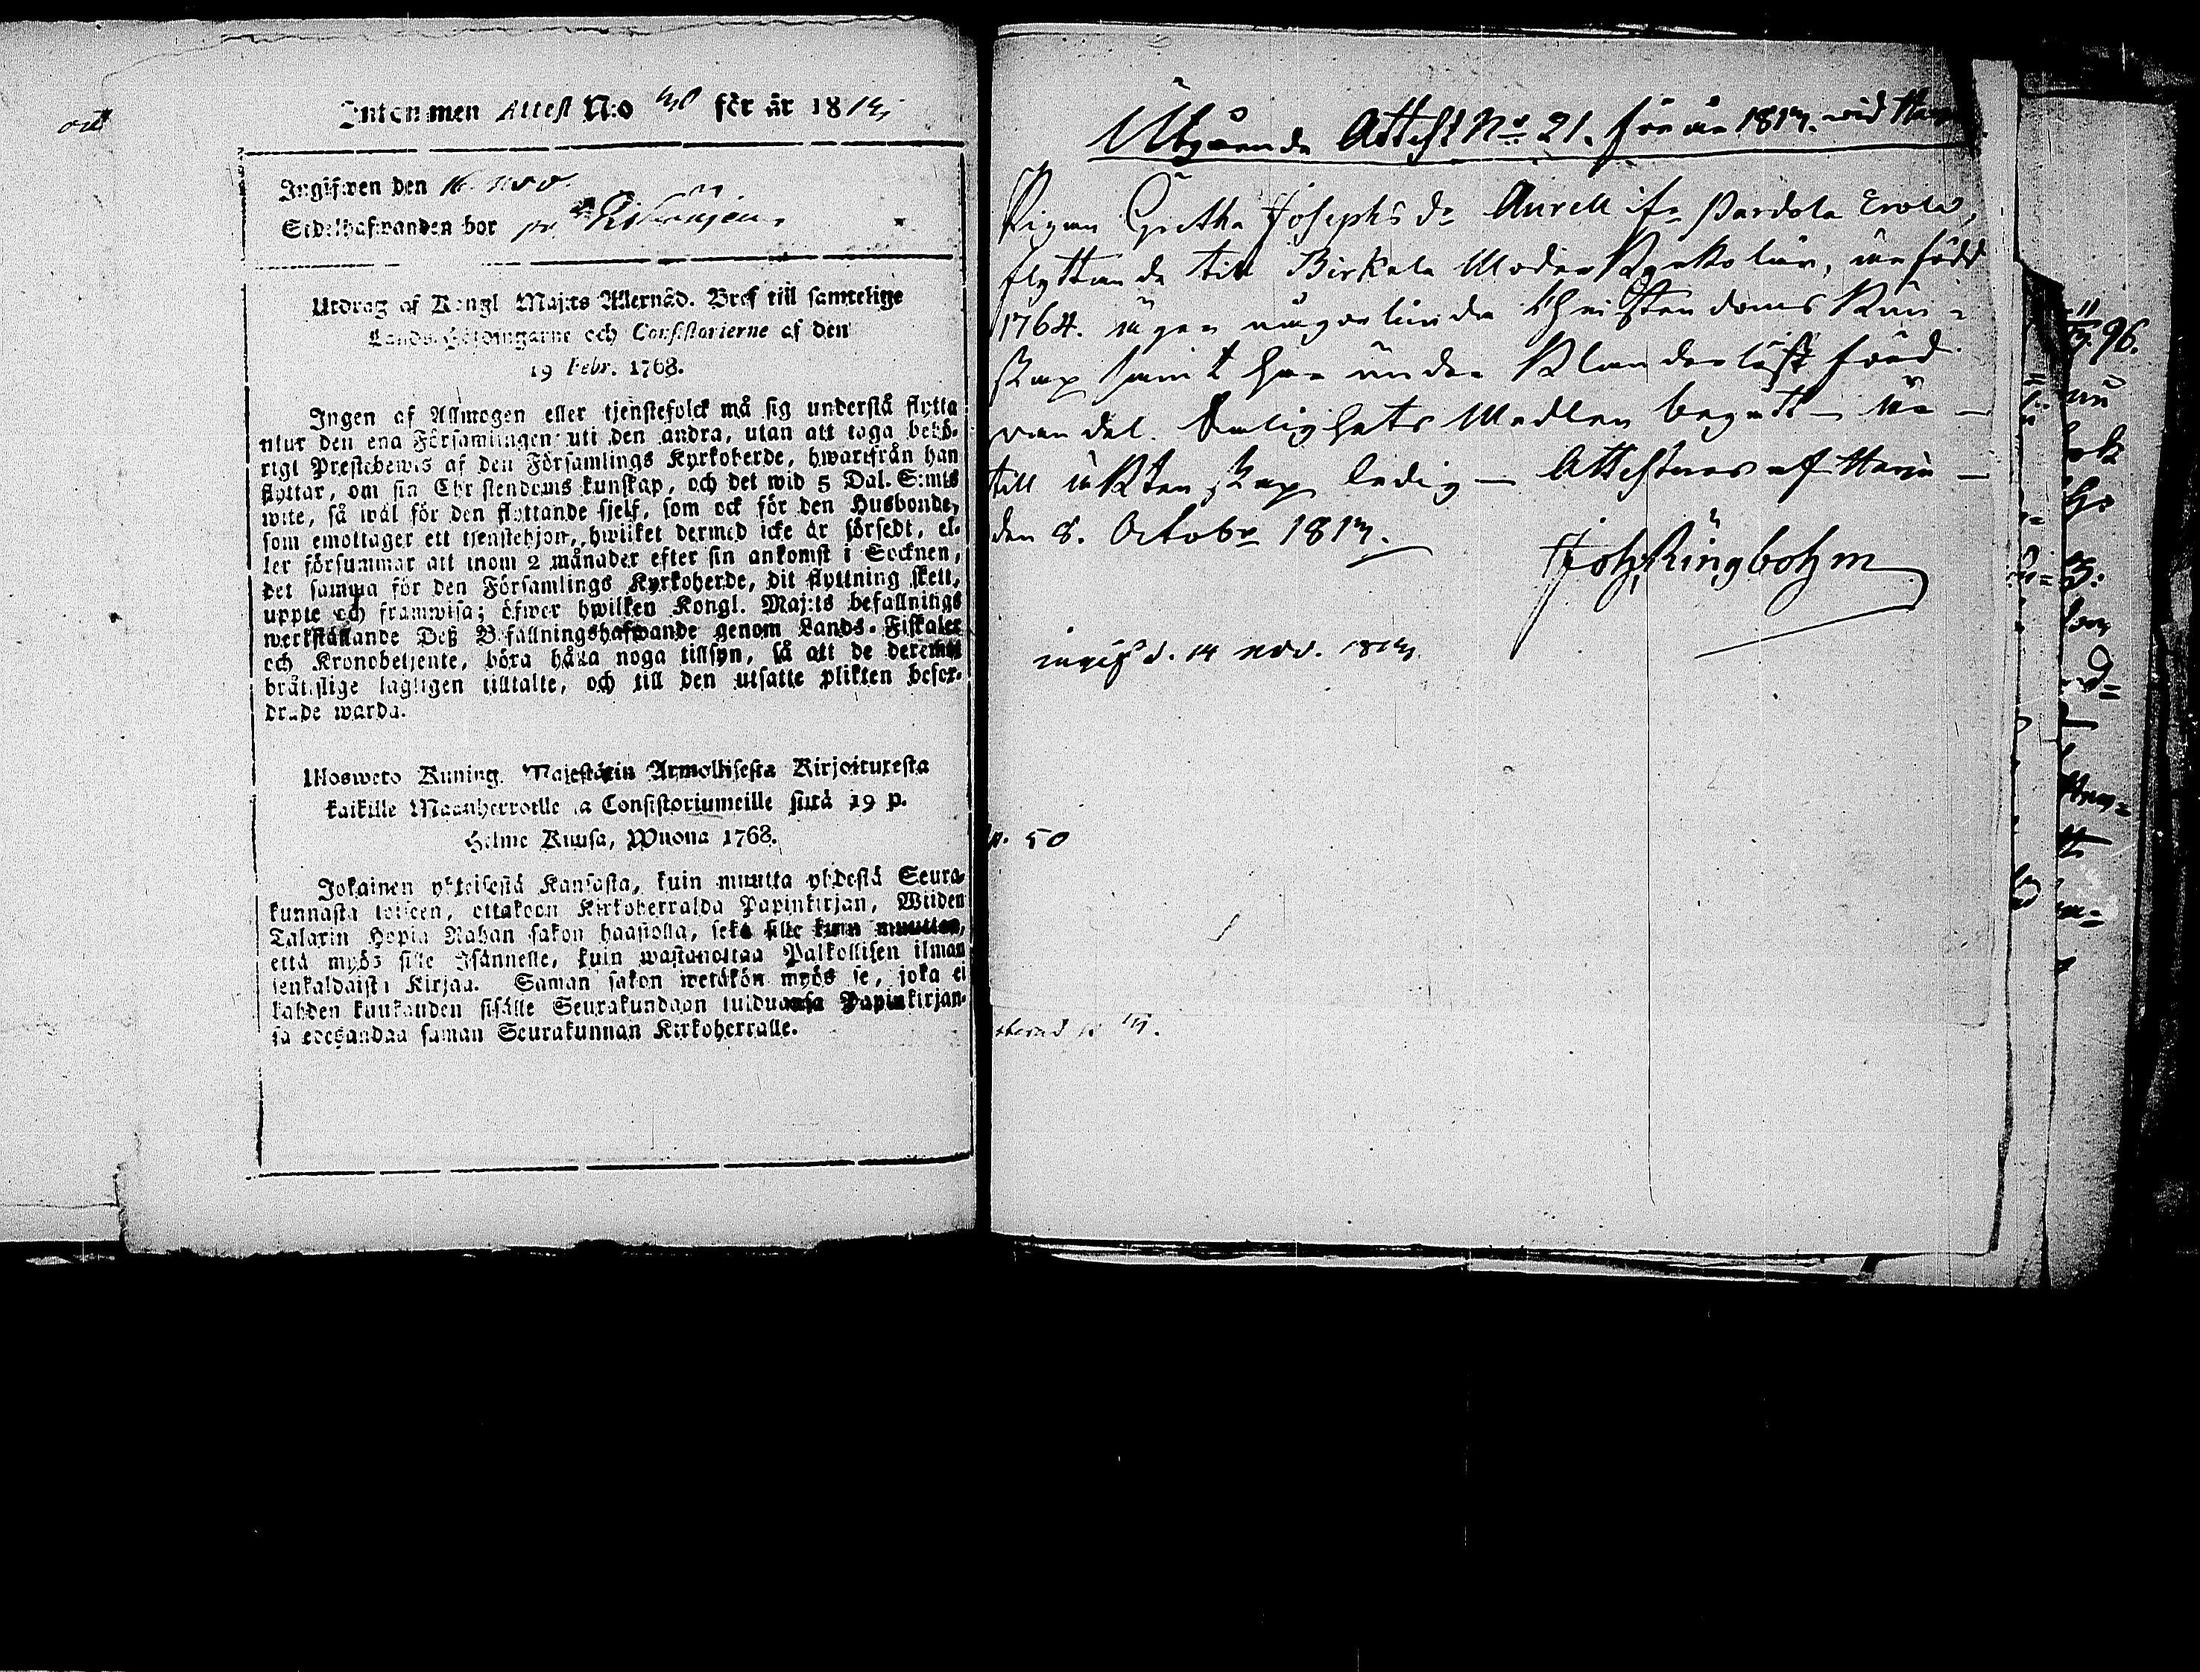 Inkommen Attest N:o 48 för år 1813
Ingifwen den 16. nov.
Sedelhafwanden bor på
Utdrag af Kongl Maj:ts Allernåd. Bref till samtelige
Lands-Höfdingarne och Consistorierne af den
19 Febr. 1768.
Ingen af Allmogen eller tjenstefolck må sig understå flytta
utur den ena Församlingen uti den andra, utan att taga behö-
rigt Prestebewis af den Församlings Kyrkoherde, hwarifrån han
flyttar, om sin Christendoms kunskap, och det wid 5 Dal. S:mts
wite, så wäl för den flyttande sjelf, som ock för den Husbonde,
som emottager ett tjenstehjon, hwilket dermed icke är försedt, el-
ler försummar att inom 2 månader efter sin ankomst i Socknen,
det samma för den Församlings Kyrkoherde, dit flyttning skett,
uppte och framwisa; öfwer hwilken Kongl. Maj:ts befallnings
werkställande Deß Befallningshafwande genom Lands-Fiskaler
och Kronobetjente, böra hålla noga tillsyn, så att de deremot
bråtslige lagligen tilltalte, och till den utsatte plikten befor-
drade warda.
Ulosweto Kuning. Majestätin Armollisesta Kirjoituxesta
kaikille Maanherroille ja Consistoriumeille siitä 19 p.
Helme Kuusa, Wuona 1768.
Jokainen yhteisestä Kansasta, kuin muutta yhdestä Seura-
kunnasta toiseen, ottakoon Kirkoherralda Papinkirjan, Wiiden
Talarin Hopia Rahan sakon haastolla, sekä sille kuin muuttaa,
että myös sille Isännelle, kuin wastanottaa Palkollisen ilman
senkaldaista Kirjaa. Saman sakon wetäkön myös se, joka ei
kahden kuukauden sisälle Seurakundaan tulduansa Papinkirjan-
sa edesandaa saman Seurakunnan Kirkoherralle.
Utgående Attest No 21. för år 1813. wid
Pigan Gretha Josephs dr Aurell ifr Pardola Erola,
flyttande till Birkala Moder Kyrkolän, är född
1764. äger någorlunda Christendoms Kun-
skap samt har under Klanderlöst fräd
vandel. Salighets Medlen begått är
till äktenskap ledig Attesteras af
den 8. Octobr 1813.
Joh, Ringbohm
ingif d. 14 nov. 1813.
p. 50